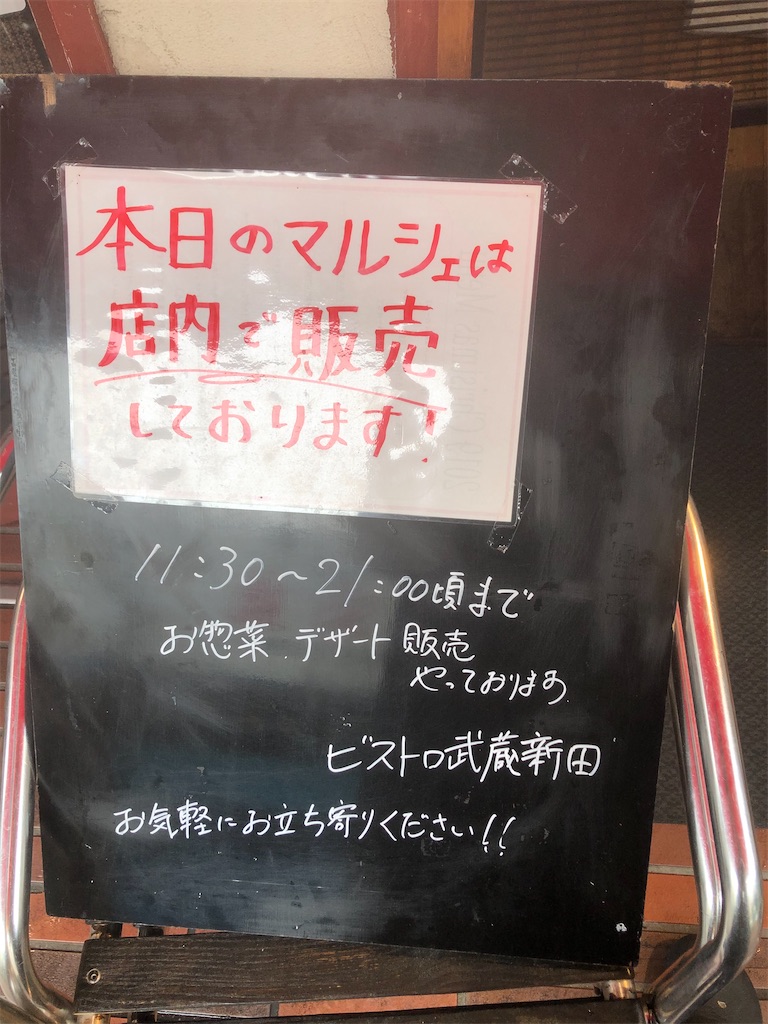 本日のマルシェは
店内で販売
しております!
11:30~21:00頃まで
お惣菜.デザート販売
やっております
ビストロ武蔵新田
お気軽にお立ち寄りください!!